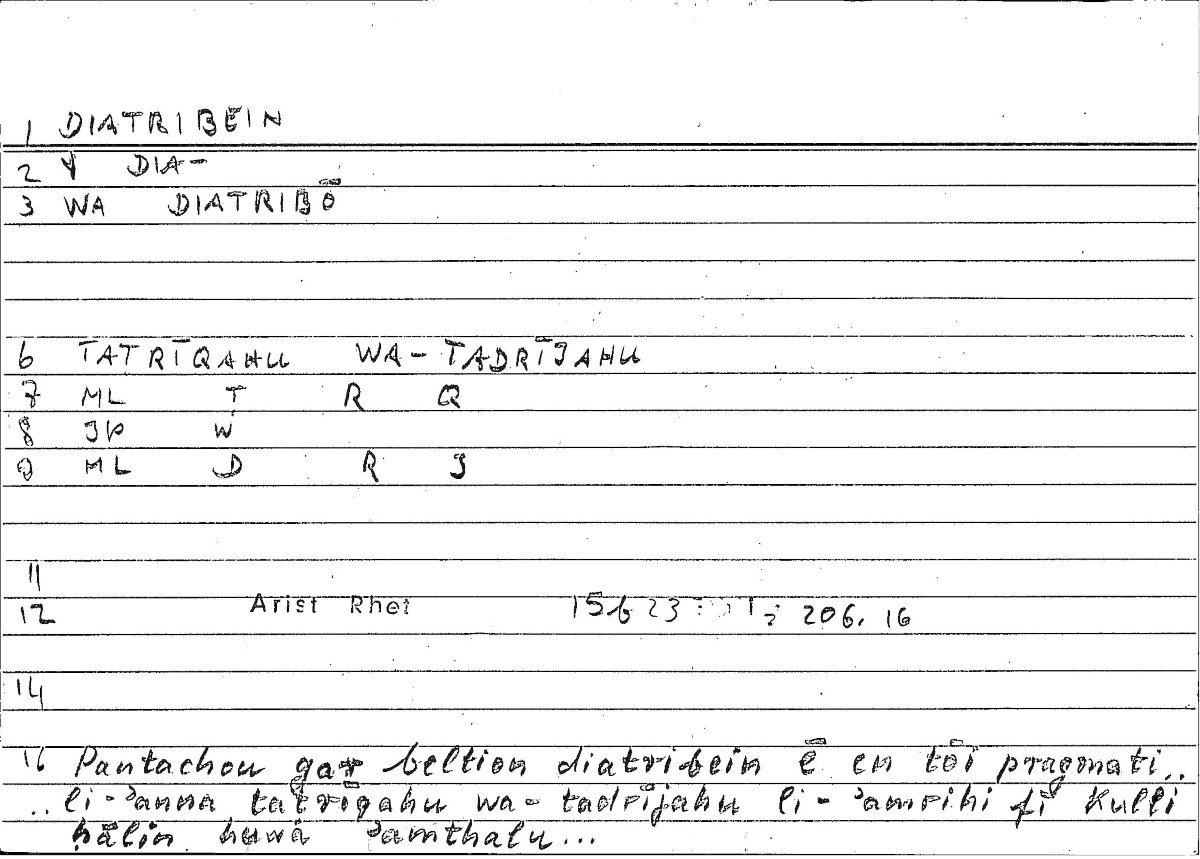 1 DIATRIBEIN
2 V DIA-
3 WA DIATRIBŌ
6 TATRĪQAHU WA- TADRĪJAHU
7 ML T R Q
8 JP W
9 ML D R J
11
12 Arist Rhet 15b23 206.16
14
16 Pantachou gar beltion diatribein ē en tōi pragmati..
..li-ʾanna tatrīqahu wa- tadrījahu li-ʾamrihi fī kulli
ḥālin huwa ʾamthalu...